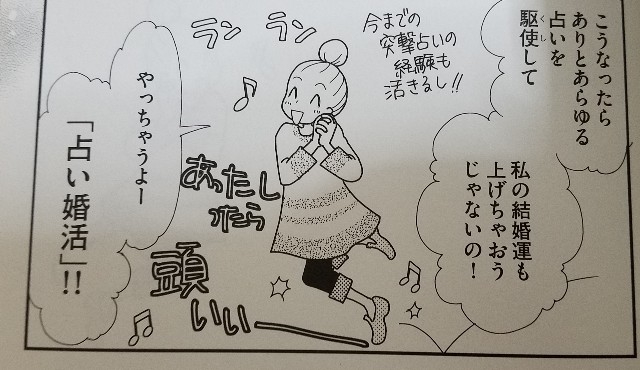 こうなったら
ありとあらゆる
占いを
駆使して
くし
私の結婚運も
上げちゃおう
じゃないの！
今までの
突撃占いの
経験も
活きるし!!
ラン ラン
あったし
ったら
頭
いいー
やっちゃうよー
「占い婚活」!!